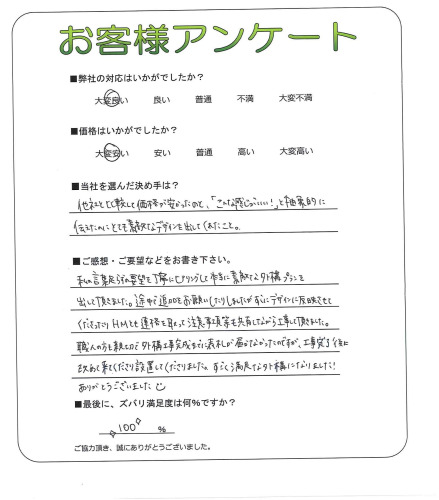 お客様アンケート
■弊社の対応はいかがでしたか？
大変良い 良い 普通 不満 大変不満
■価格はいかがでしたか？
大変安い 安い 普通 高い 大変高い
■当社を選んだ決め手は？
他社と比較して価格が安かったのと、「こんな感じがいい！」と抽象的に
伝えたのにとても素敵なデザインを出してくれたこと。
■ご感想・ご要望などをお書き下さい。
私の言葉足らずな要望を丁寧にヒアリングして本当に素敵な外構プランを
出して頂きました。途中で追加をお願いしたりしましたがすぐにデザインに反映させて
くださったり HMとも連絡を取って注意事項等も共有しながら工事して頂きました。
職人の方も親切で外構工事完成までに表札が届かなかったのですが、工事完了後に
改めて来てくださり設置してくださりました。すごく満足な外構になりました！
ありがとうございました
■最後に、ズバリ満足度は何％ですか？
100 %
ご協力頂き、誠にありがとうございました。